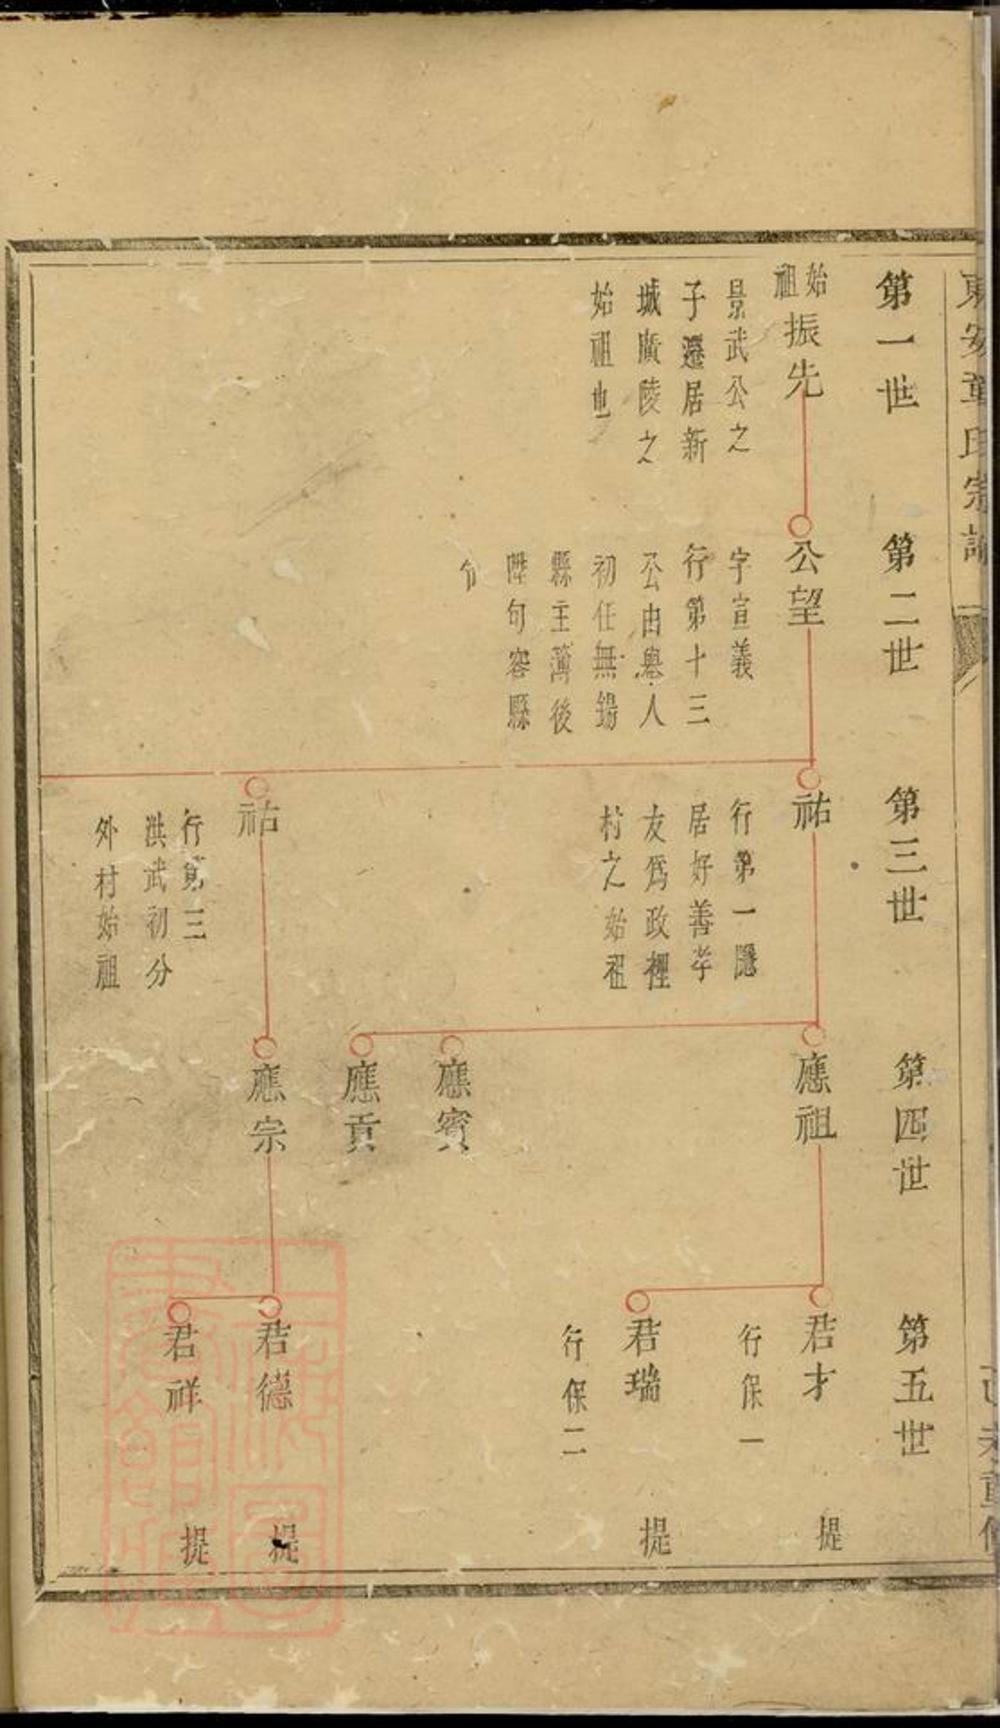 東安童氏宗譜
己未重修
第一世
第二世
第三世
第四世
第五世
始祖振先
景武公之
子遷居新
城廣陵之
始祖也
公望
字宣義
行第十三
公由舉人
初任無錫
縣主簿後
陞句容縣
令
祐
行第一隱
居好善孝
友爲政裡
村之始祖
祜
行第三
洪武初分
外村始祖
應祖
應賓
應貢
應宗
君才
行保一
提
君瑞
行保二
提
君德
提
君祥
提
上海圖書館藏